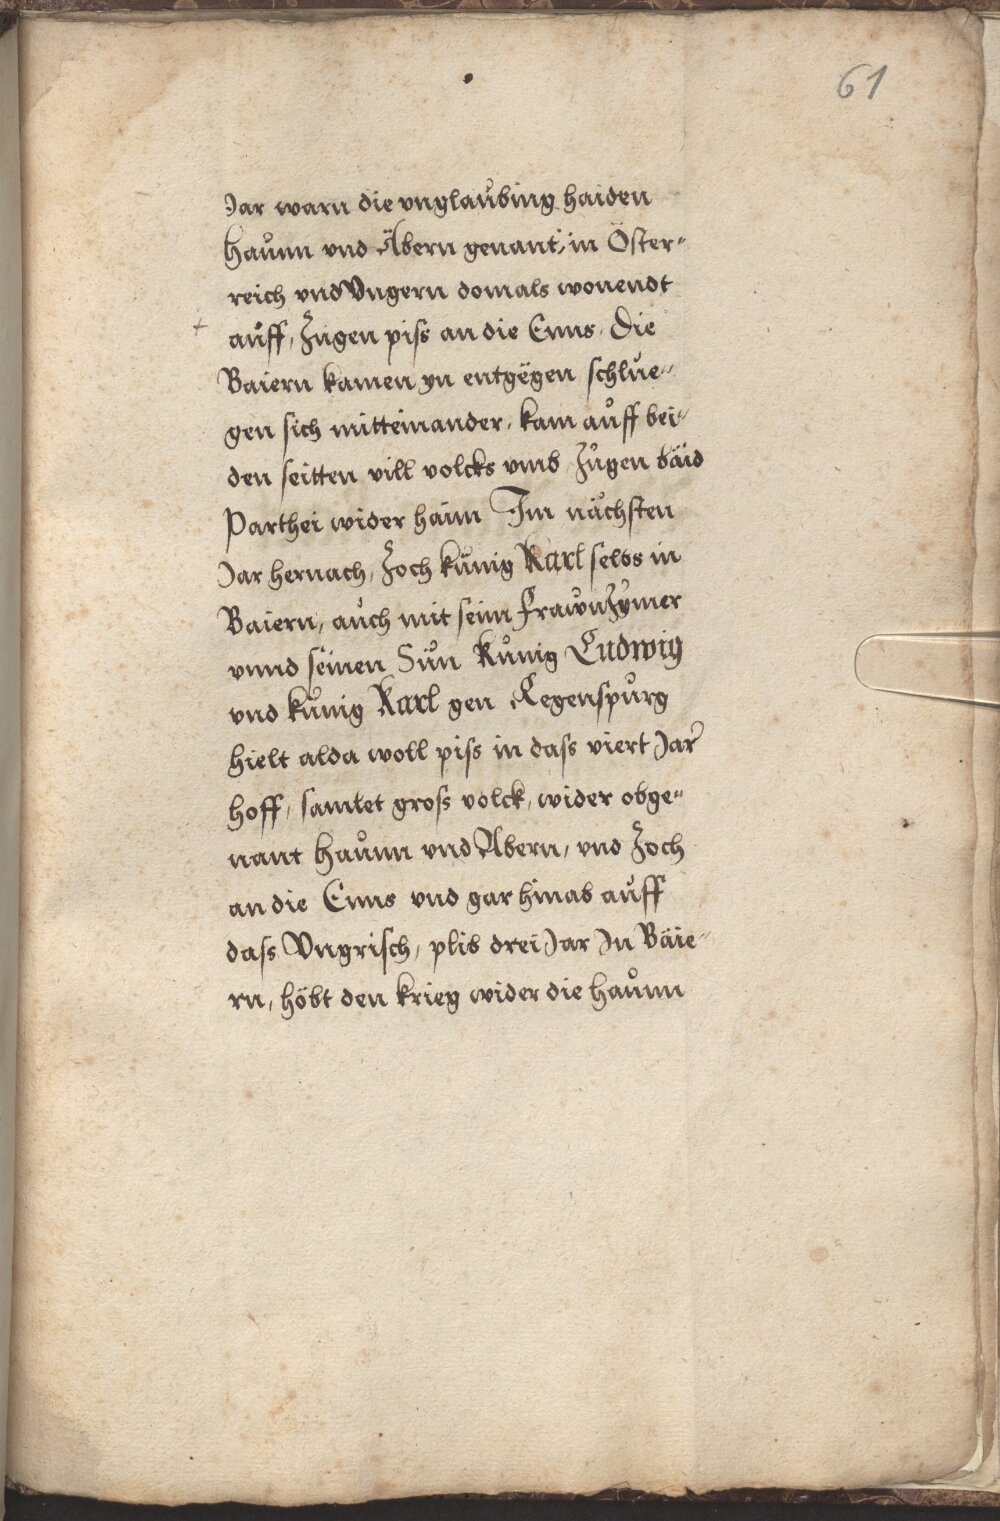 61
Jar warn die vnglaubing haiden
Haunn vnd Äbern genant, in Öster-
reich vnd Vngern domals wonendt
+ auff, Zugen piss an die Enns. Die
Baiern kamen yn entgëgen schlue-
gen sich mitteinander, kam auff bei-
den seitten vill volcks vmb Zugen bäid
Parthei wider haim Im nächsten
Jar hernach, Zoch kunig Karl selbs in
Baiern, auch mit seim FrawnZymer
vnnd seinen Sün Kunig Ludwig
vnd kunig Karl gen Regenspurg
hielt alda woll piss in dass viert Jar
hoff, samlet gross volck, wider obge-
nant Haunn vnd Abern, vnd Zoch
an die Enns vnd gar hinab auff
dass Vngrisch, plib drei Jar Jn Bäie-
rn, höbt den krieg wider die Haunn